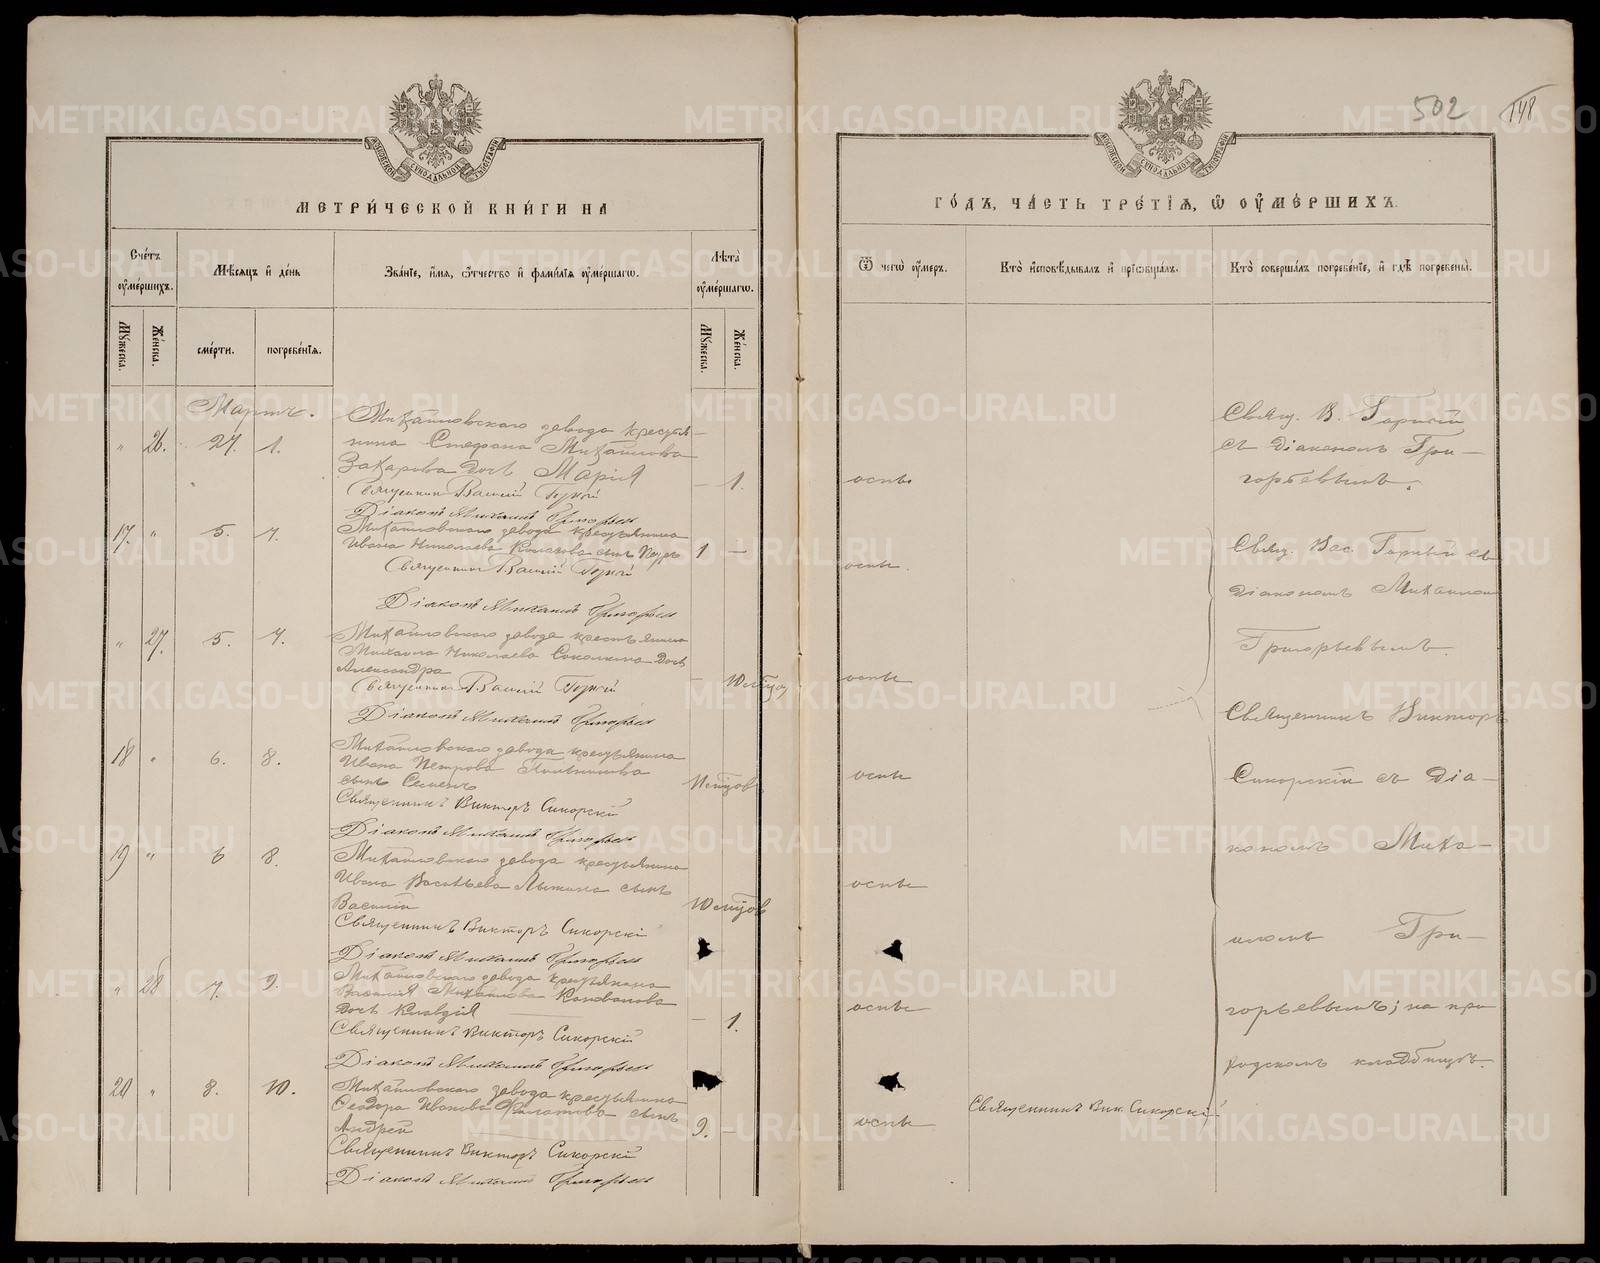 МОСКОВСКОЙ СѴНОДАЛЬНОЙ ТИПОГРАФІИ
МЕТРИ́ЧЕСКОЙ КНИ́ГИ НА
Сче́тъ ᲂу҆ме́ршихъ.
Мѣ́сяцъ и҆ де́нь
Зва́нїе, и҆́мя, ѻ҆́тчество и҆ фами́лїя ᲂу҆ме́ршагѡ.
Лѣ́та ᲂу҆ме́ршагѡ.
Мꙋ́жеска.
Же́нска.
сме́рти.
погребе́нїѧ.
Мꙋ́жеска.
Же́нска.
Мартъ.
" 26. 27. 1.
Михайловскаго завода крестья-
нина Стефана Михайлова
Захарова дочь Марія
— 1.
Священникъ Василій Горный
Діаконъ Михаилъ Григорьевъ
17. " 5. 7.
Михайловскаго завода крестьянина
Ивана Николаева Колскова сынъ Петръ
1 —
Священникъ Василій Горный
Діаконъ Михаилъ Григорьевъ
" 27. 5. 7.
Михайловскаго завода крестьянина
Михаила Николаева Соколкина дочь
Александра
— 10 мѣсяц
Священникъ Василій Горный
Діаконъ Михаилъ Григорьевъ
18 " 6. 8.
Михайловскаго завода крестьянина
Ивана Петрова
сынъ Семенъ
Священникъ Викторъ Сикорскій
Діаконъ Михаилъ Григорьевъ
19 " 6 8.
Михайловскаго завода крестьянина
Ивана Васильева Лыжина сынъ
Василій
10 мѣсяцов
Священникъ Викторъ Сикорскій
Діаконъ Михаилъ Григорьевъ
" 28 7. 9.
Михайловскаго завода крестьянина
Василія Михайлова Колованова
дочь Клавдія
— 1.
Священникъ Викторъ Сикорскій
Діаконъ Михаилъ Григорьевъ
20 " 8. 10.
Михайловскаго завода крестьянина
Ѳеодора Иванова Филатова сынъ
Андрей
9. —
Священникъ Викторъ Сикорскій
Діаконъ Михаилъ Григорьевъ
502 148
МОСКОВСКОЙ СѴНОДАЛЬНОЙ ТИПОГРАФІИ
ГО́ДЪ, ЧА́СТЬ ТРЕ́ТІѦ, Ѡ ОУ҆МЕ́РШИХЪ.
Ѿ чегѡ̀ ᲂу҆́меръ.
Кто̀ и҆сповѣ́дывалъ и҆ прїѡбща́лъ.
Кто̀ соверша́лъ погребе́нїе, и҆ гдѣ̀ погребены̀.
оспы
Свящ. В. Горный
съ діакономъ Гри-
горьевымъ.
оспы.
Свящ. Вас. Горный съ
діакономъ Михаиломъ
Григорьевымъ.
оспы
Священникъ Викторъ
оспы
Сикорскій съ діа-
кономъ Миха-
оспы
иломъ Гри-
оспы
горьевымъ; на при
ходскомъ кладбищѣ.
оспы
Священникъ Вик. Сикорскій
METRIKI.GASO-URAL.RU